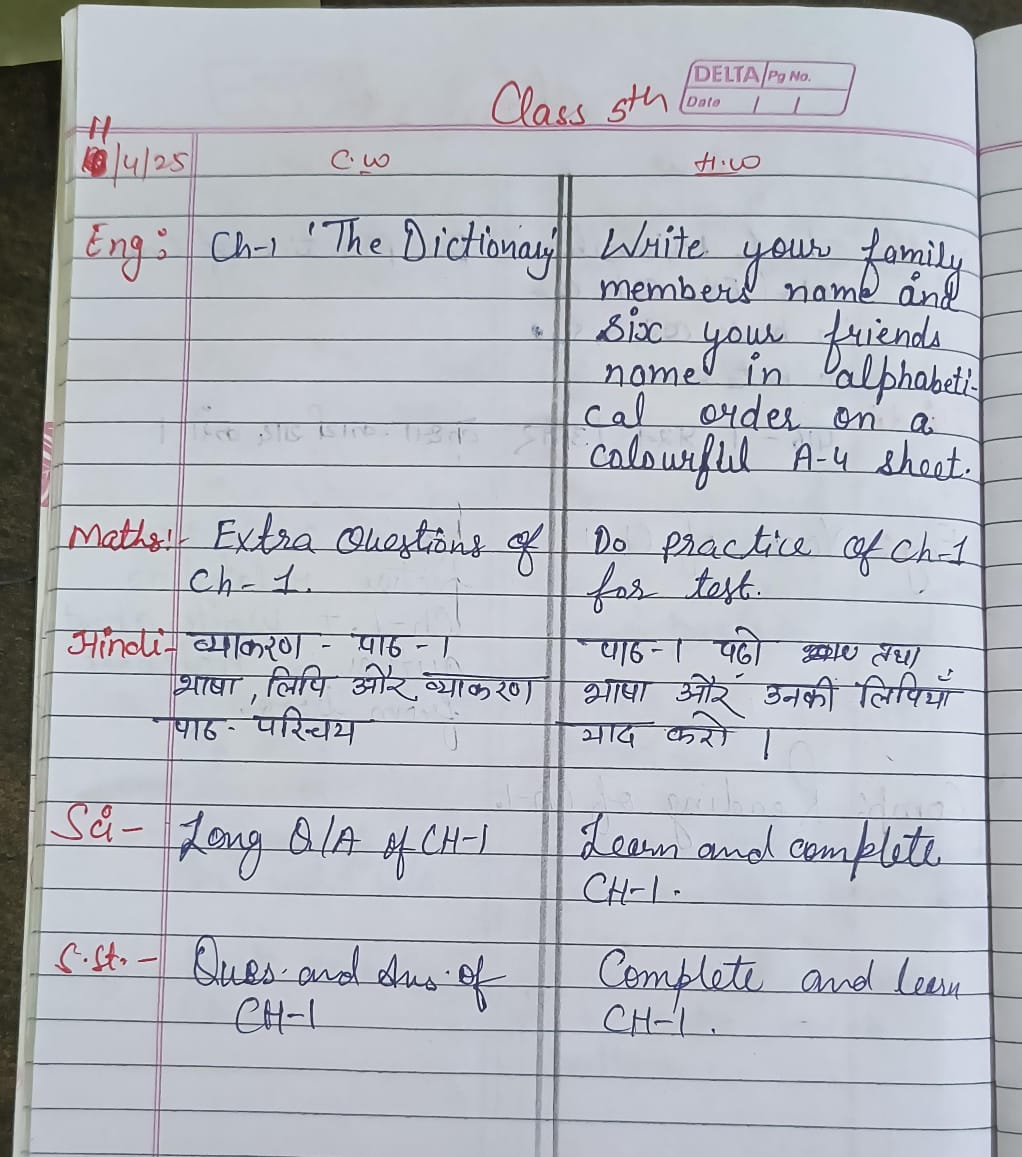 DELTA Pg No.
Date / /
Class 5th
11/4/25 C.W H.W
Eng: Ch-1 'The Dictionary' Write your family
members name and
six your friends
name in alphabeti-
cal order on a
colourful A-4 sheet.
Maths:- Extra Questions of Do practice of Ch-1
Ch-1. for test.
Hindi- व्याकरण - पाठ -1 पाठ-1 पढो तथा
भाषा, लिपि और व्याकरण भाषा और उनकी लिपियाँ
पाठ- परिचय याद करो ।
Sci- Long Q/A of CH-1 Learn and complete
CH-1.
S.St.- Ques. and Ans. of Complete and learn
CH-1 CH-1.